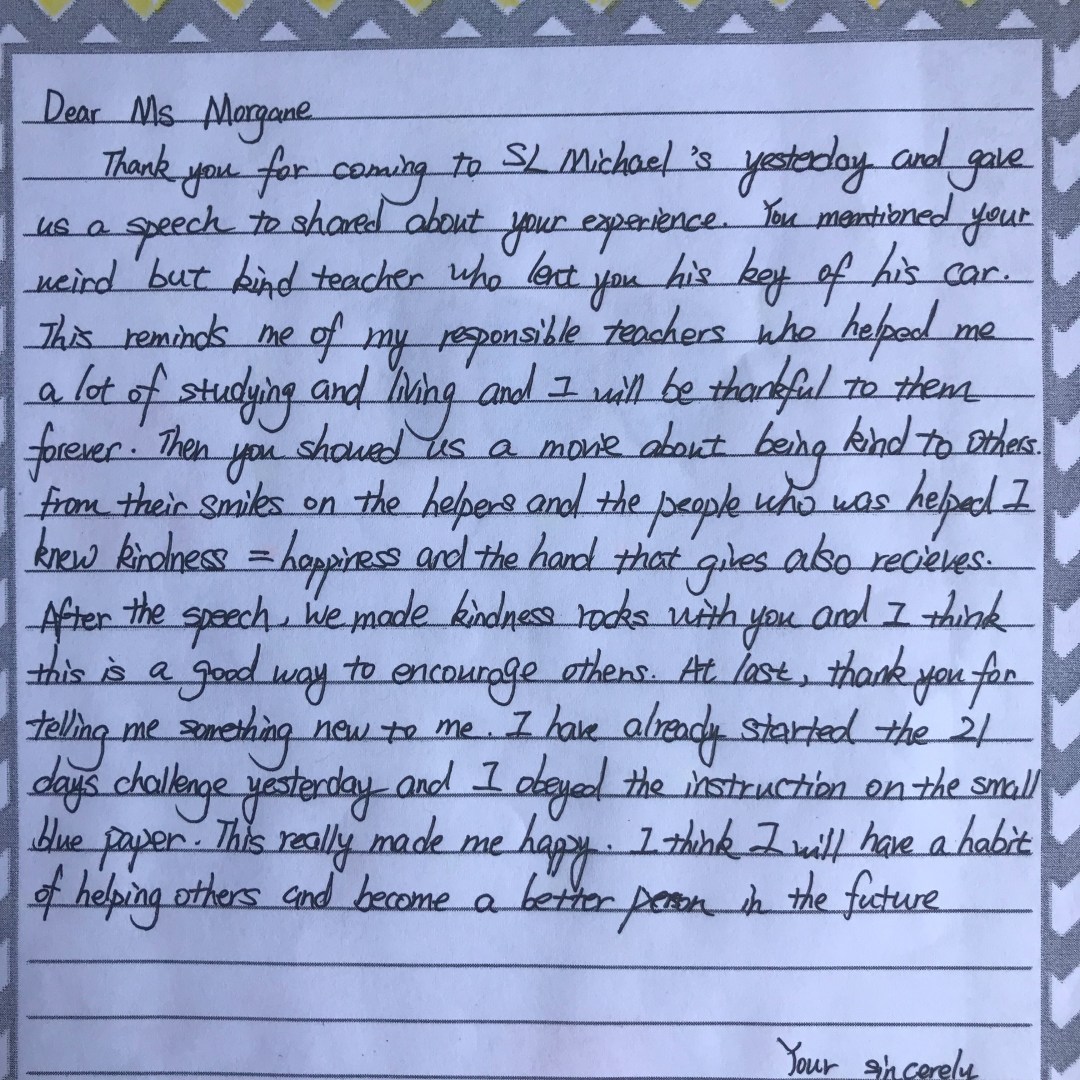 Dear Ms Morgane
Thank you for coming to SL Michael's yesterday and gave
us a speech to shared about your experience. You mentioned your
weird but kind teacher who lent you his key of his car.
This reminds me of my responsible teachers who helped me
a lot of studying and living and I will be thankful to them
forever. Then you showed us a movie about being kind to others.
from their smiles on the helpers and the people who was helped I
knew kindness = happiness and the hand that gives also recieves.
After the speech, we made kindness rocks with you and I think
this is a good way to encourage others. At last, thank you for
telling me something new to me. I have already started the 21
days challenge yesterday and I obeyed the instruction on the small
blue paper. This really made me happy. I think I will have a habit
of helping others and become a better person in the future
Your sincerely